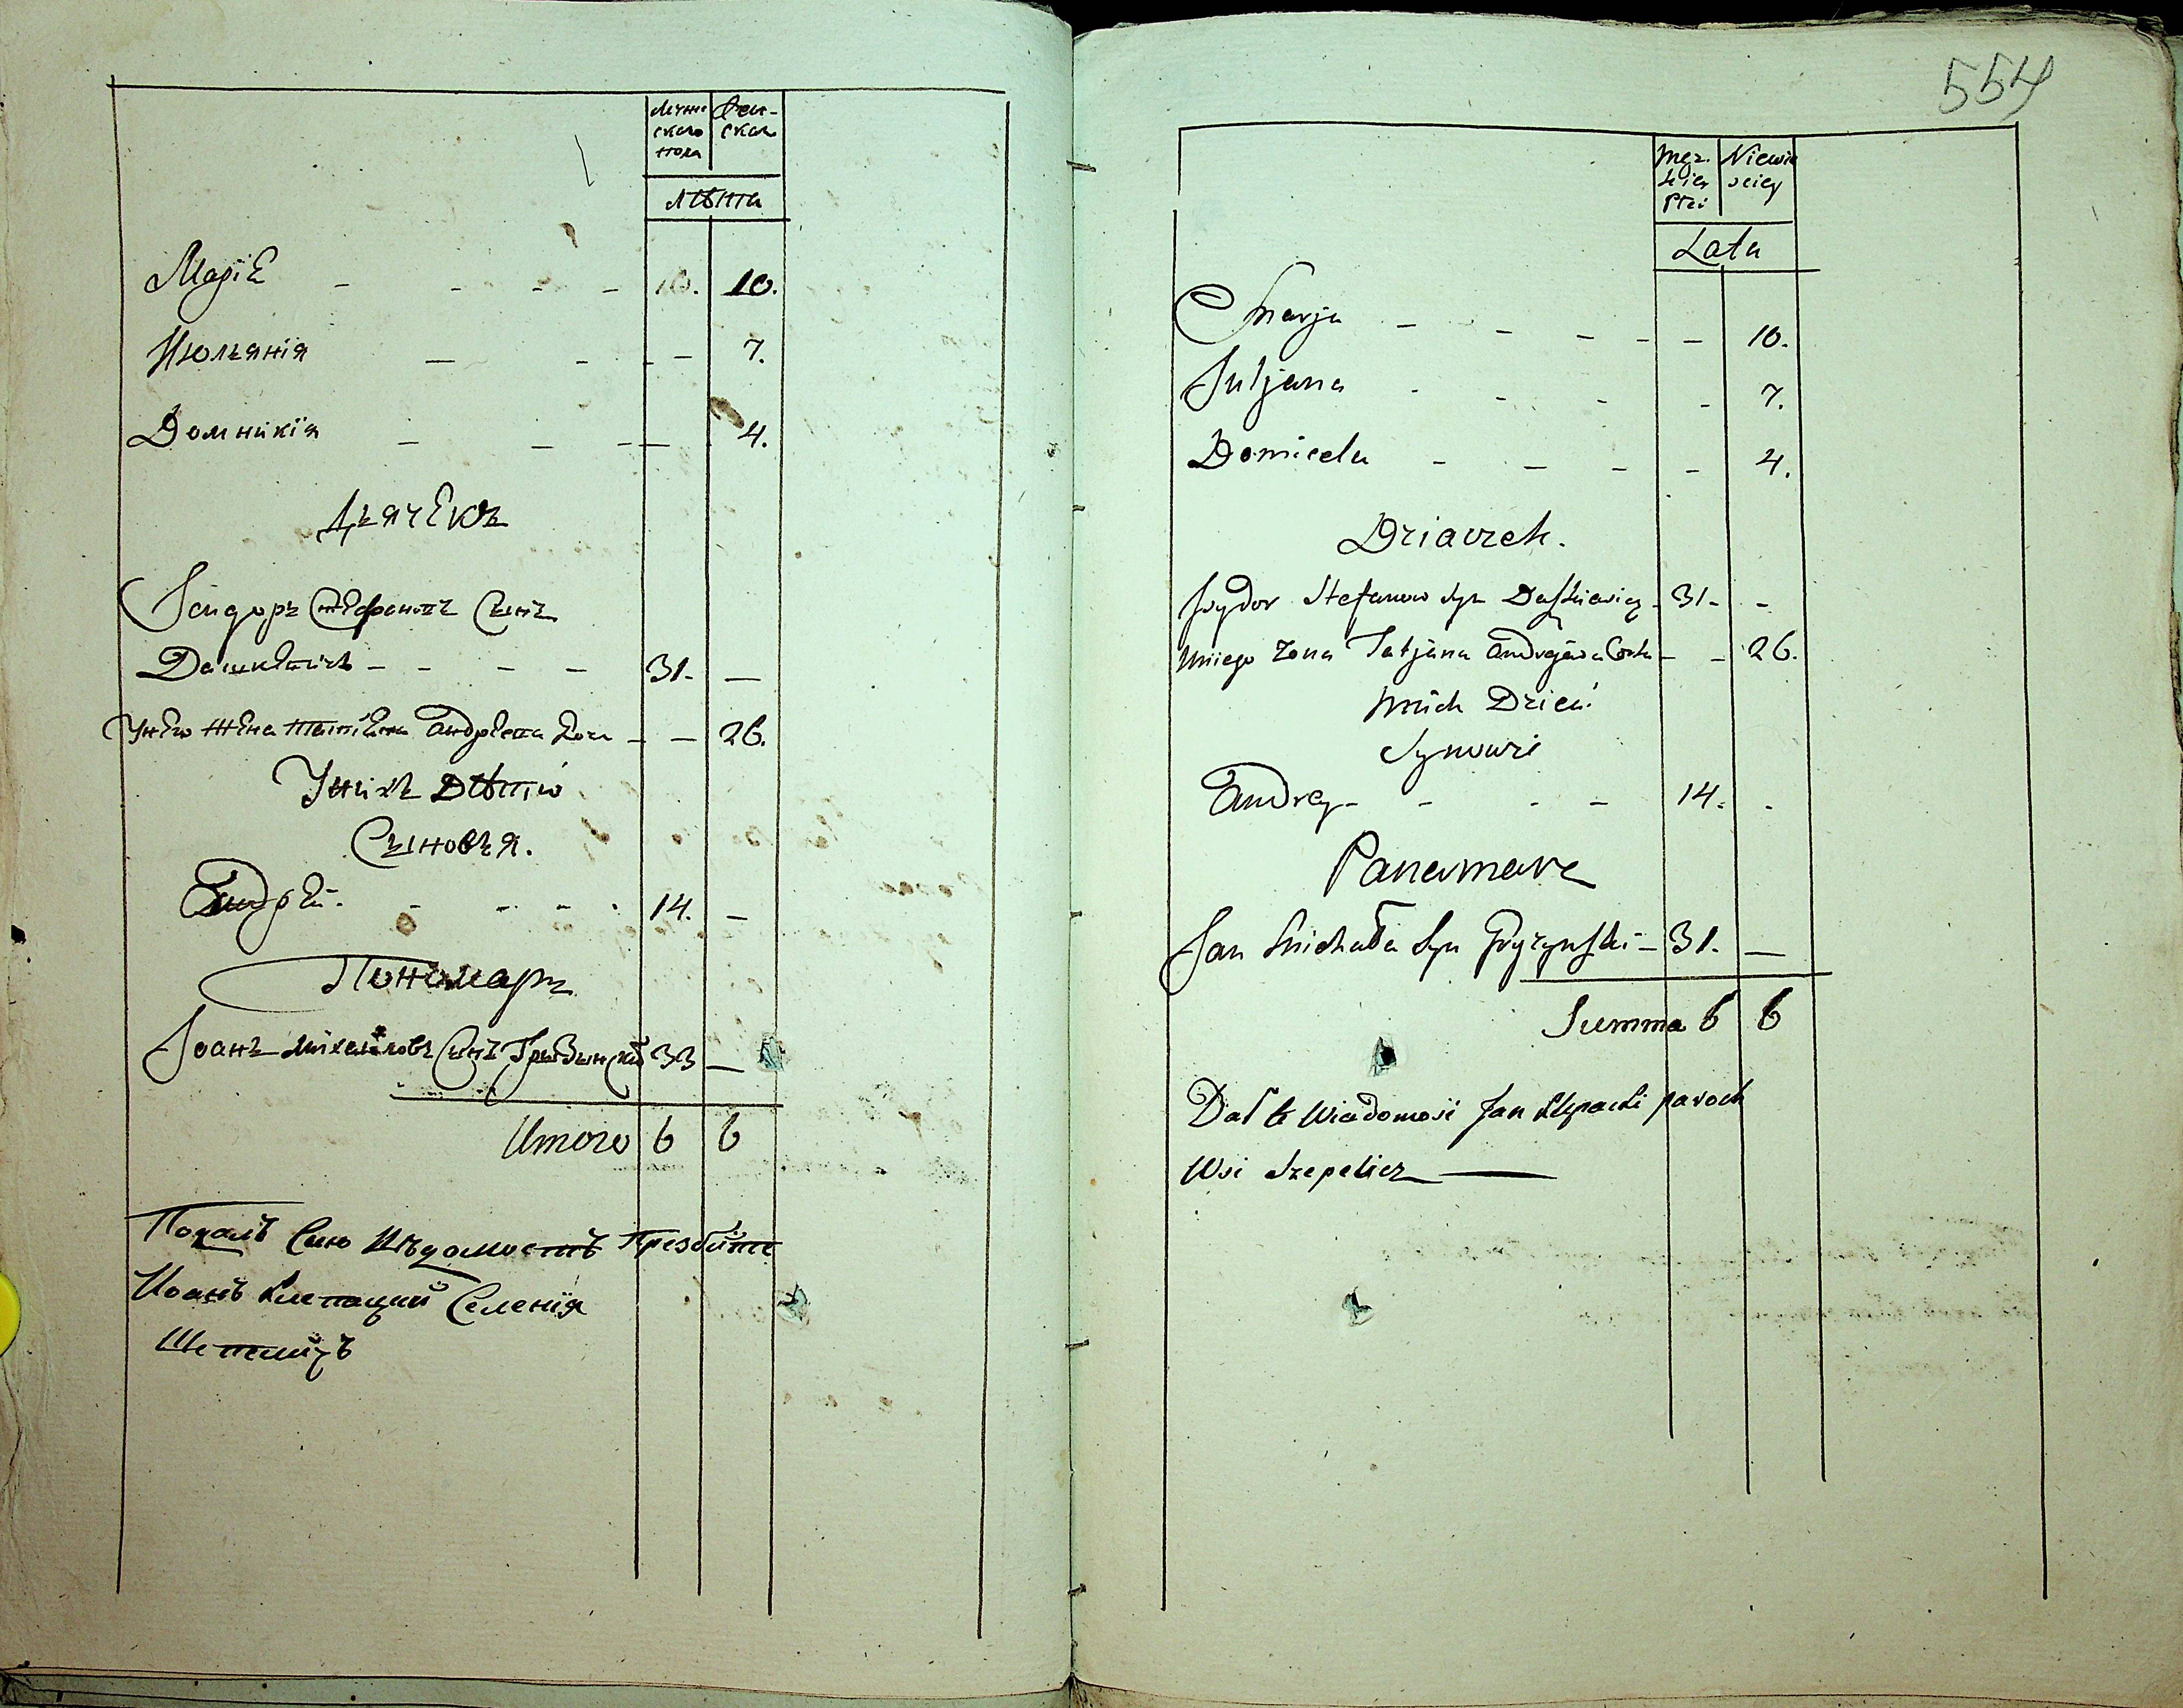 Мужескаго пола Женскаго
Лѣта
Маріе - - - - 10. 10.
Июльянія - - - - 7.
Домникія - - - - 4.
Дьячекъ
Ісидоръ Стефановъ Сынъ
Дашкевичъ - - - - 31. -
Унего жена татіяна Андреева Доч - - 26.
Унихъ Дѣти
Сыновья.
Андрей - - - - 14. -
Пономарь
Іоанъ михаиловъ Сынъ Грызынскій 33 -
Итого 6 6
Подалъ Сию Вѣдомость Презбите
Иоанъ Клепацкий Селенія
Шепеличъ
554
Męzkiey Płci Niewieściey
Lata
Marja - - - - - 10.
Juljana - - - - 7.
Domicela - - - - 4.
Dziaczek.
Jzydor Stefanow Syn Daszkiewicz - 31 - -
Uniego Zona Tatjana Andrejewa Corka - - 26.
Unich Dzieci
Synowie
Andrey - - - - 14. -
Panamarz
Jan Michała Syn Gryzynski - 31. -
Summa 6 6
Dał te Wiadomość Jan Klepacki paroch
Wsi Szepelicz